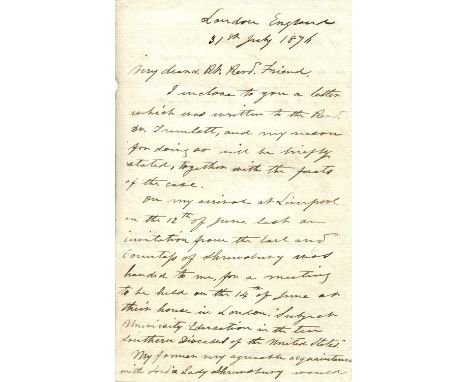 London England
31st July 1876
Very dear & Rt. Revd. Friend.
I inclose to you a letter
which was written to the Revd.
Dr. Tremlett, and my reason
for doing so will be briefly
stated, together with the facts
of the case.
On my arrival at Liverpool
on the 12th of June last an
invitation from the Earl and
Countess of Shrewsbury was
handed to me, for a meeting
to be held on the 14th of June at
their house in London "Subject
University Education in the ten
Southern Dioceses of the United States"
My former very agreeable acquaintance
with Lord & Lady Shrewsbury would